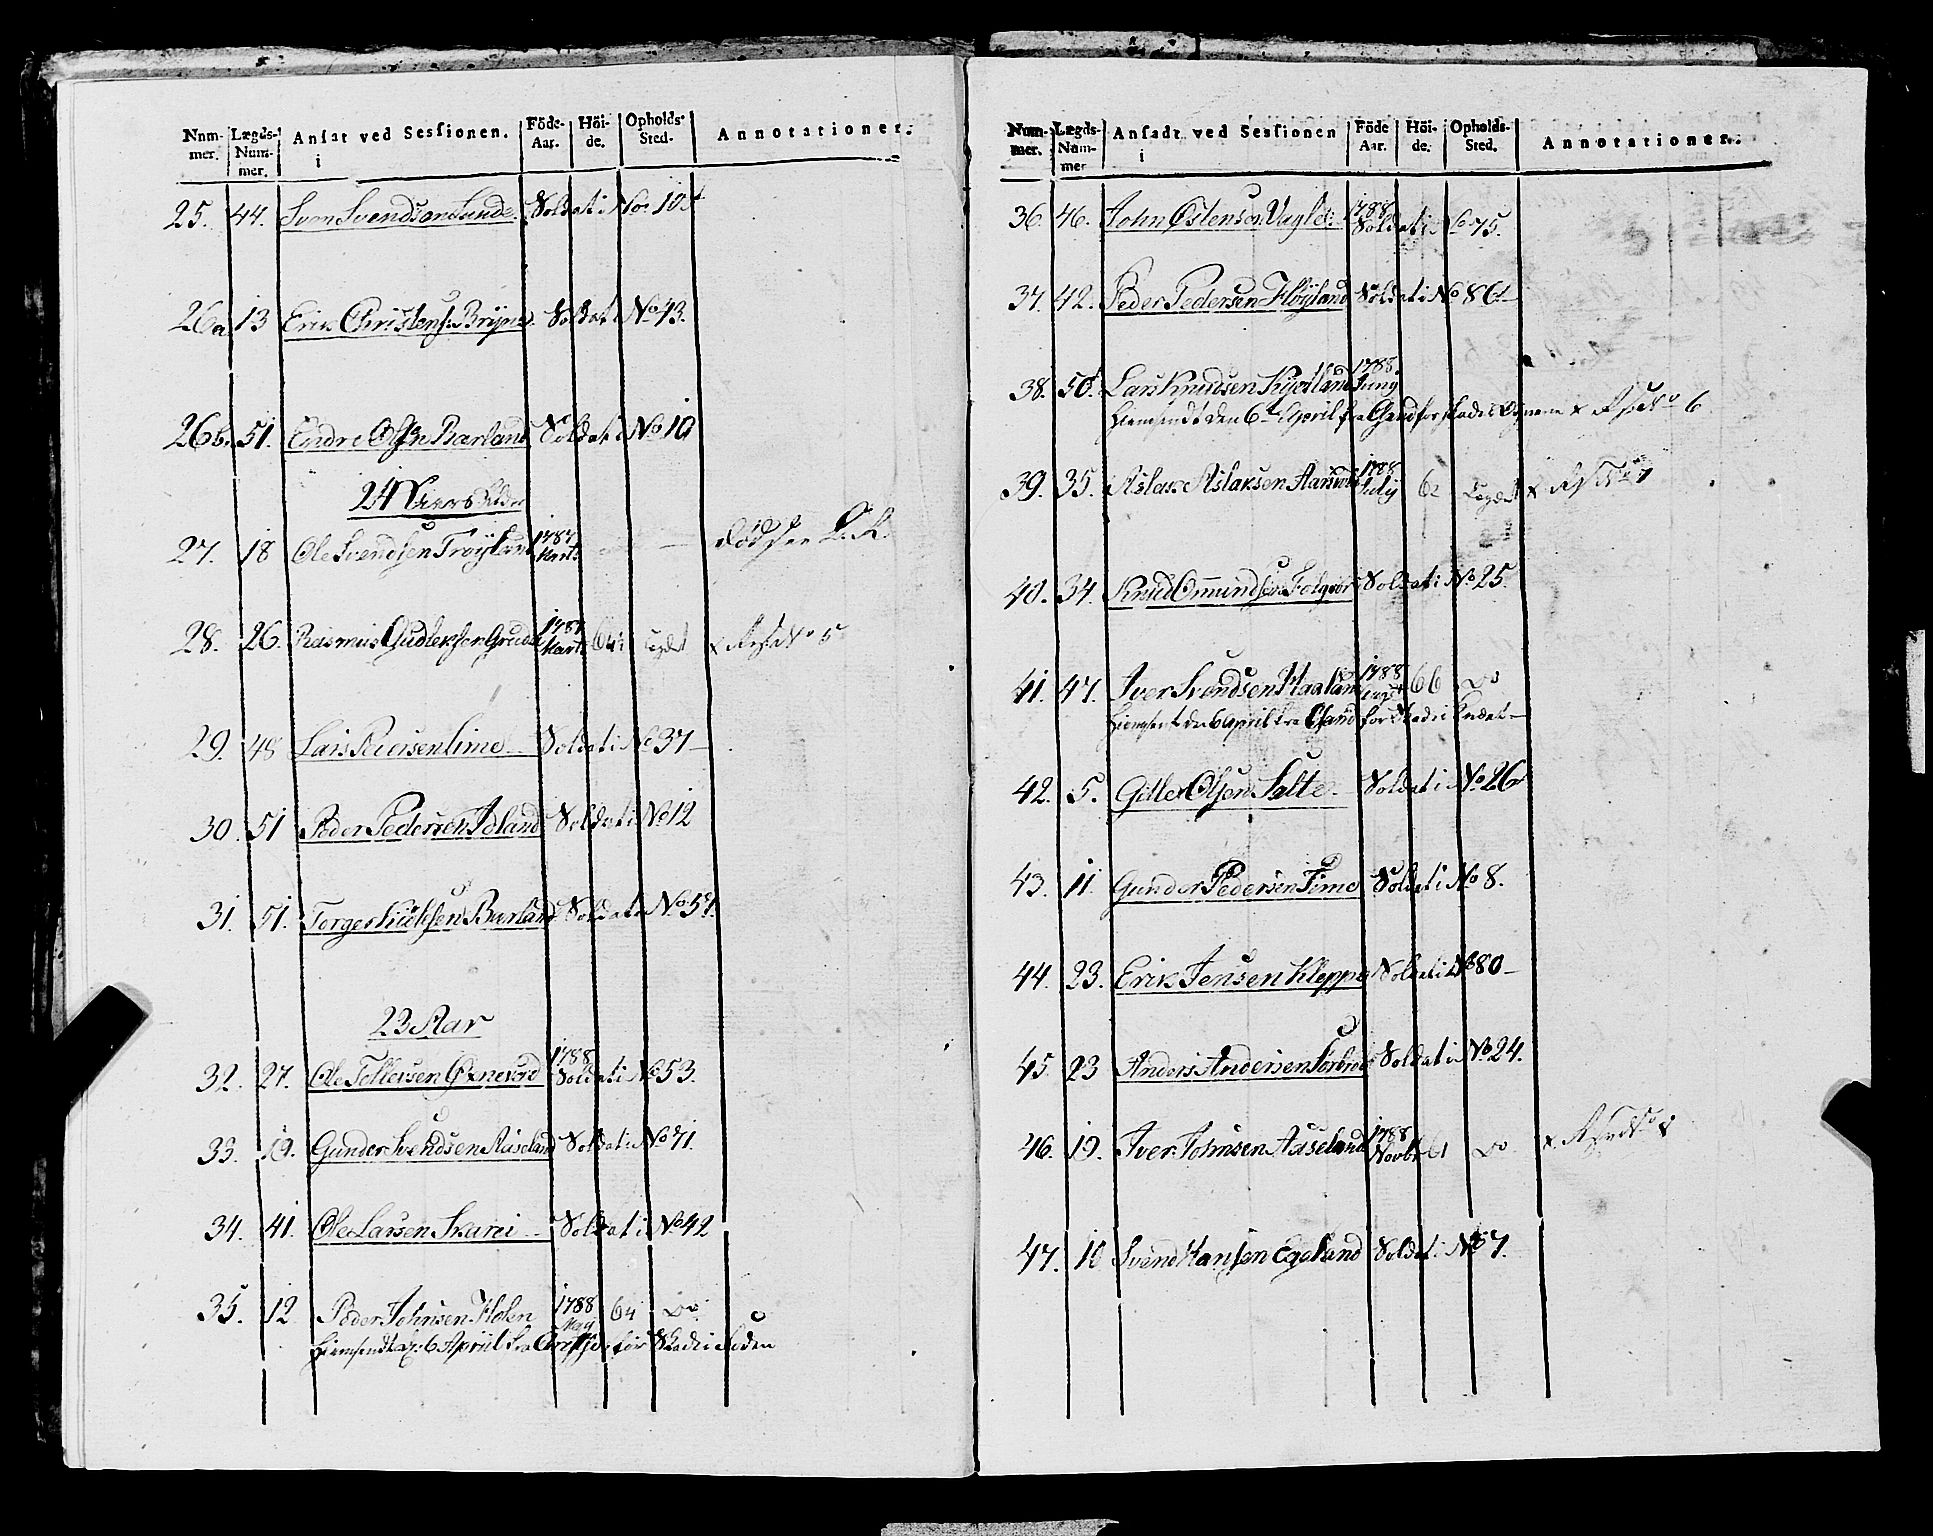 Num- Lægds- Ansat ved Sessionen. Föde- Höi- Opholds- Annotationer.
mer. Num- i Aar. de. Sted.
mer.
25. 44. Sven Svendsen Lunde Soldat i No 105
26a 13 Erik Christens. Bryne Soldat i No 43.
26b. 51. Endre Olsen Barland Soldat i No 10
24 Aars Alder
27. 18 Ole Svendsen Trøyland 1787 Marts — død
28. 26. Rasmus Gudleksen Grude 1787 Marts 64½ Lægdet x No 5
29. 48 Lars Lime Soldat i No 37
30. 51 Peder Pedersen Idland Soldat i No 12
31. 51. Torger Barland Soldat No 57.
23 Aar
32. 27. Ole Tollevsen Øxnevad 1788 Soldat i No 53.
33. 19. Gunder Svendsen Aaseland Soldat i No 71.
34. 41. Ole Larsen Skarei Soldat i No 42
35. 12 Peder Johnsen Holen 1788 May 64 Do
Hiemsendt d. 6 April fra for Skade i Foden
Num- Lægds- Ansadt ved Sessionen Föde Höi- Opholds- Annotationer.
mer. Num- i Aar. de. Sted.
mer
36. 46. John Østensen Vagle 1788 Soldat i No 75.
37. 42. Peder Pedersen Høyland Soldat i No 86
38. 50. Lars Knudsen Kydland 1788 Juny
Hiemsendt den 6te April fra for skade x No 6
39. 35. Aslak Aslaksen 1788 July 62 Lægdet x No 7
40. 34. Knud Ommundsen Folqvor Soldat i No 25.
41. 47. Iver Svendsen Haaland 1788 66 Do
Hiemsent den 6 april fra for Skade i
42. 5. Gitle Olsen Salte Soldat i No 26
43. 11. Gunder Pedersen Time Soldat i No 8.
44. 23. Erik Jensen Kleppe Soldat i No 80
45. 23 Anders Andersen Soldat i No 24.
46. 19. Iver Johnsen Aaseland 1788 Novbr 61 Do x
47. 10 Svend Hansen Egeland Soldat i No 7.